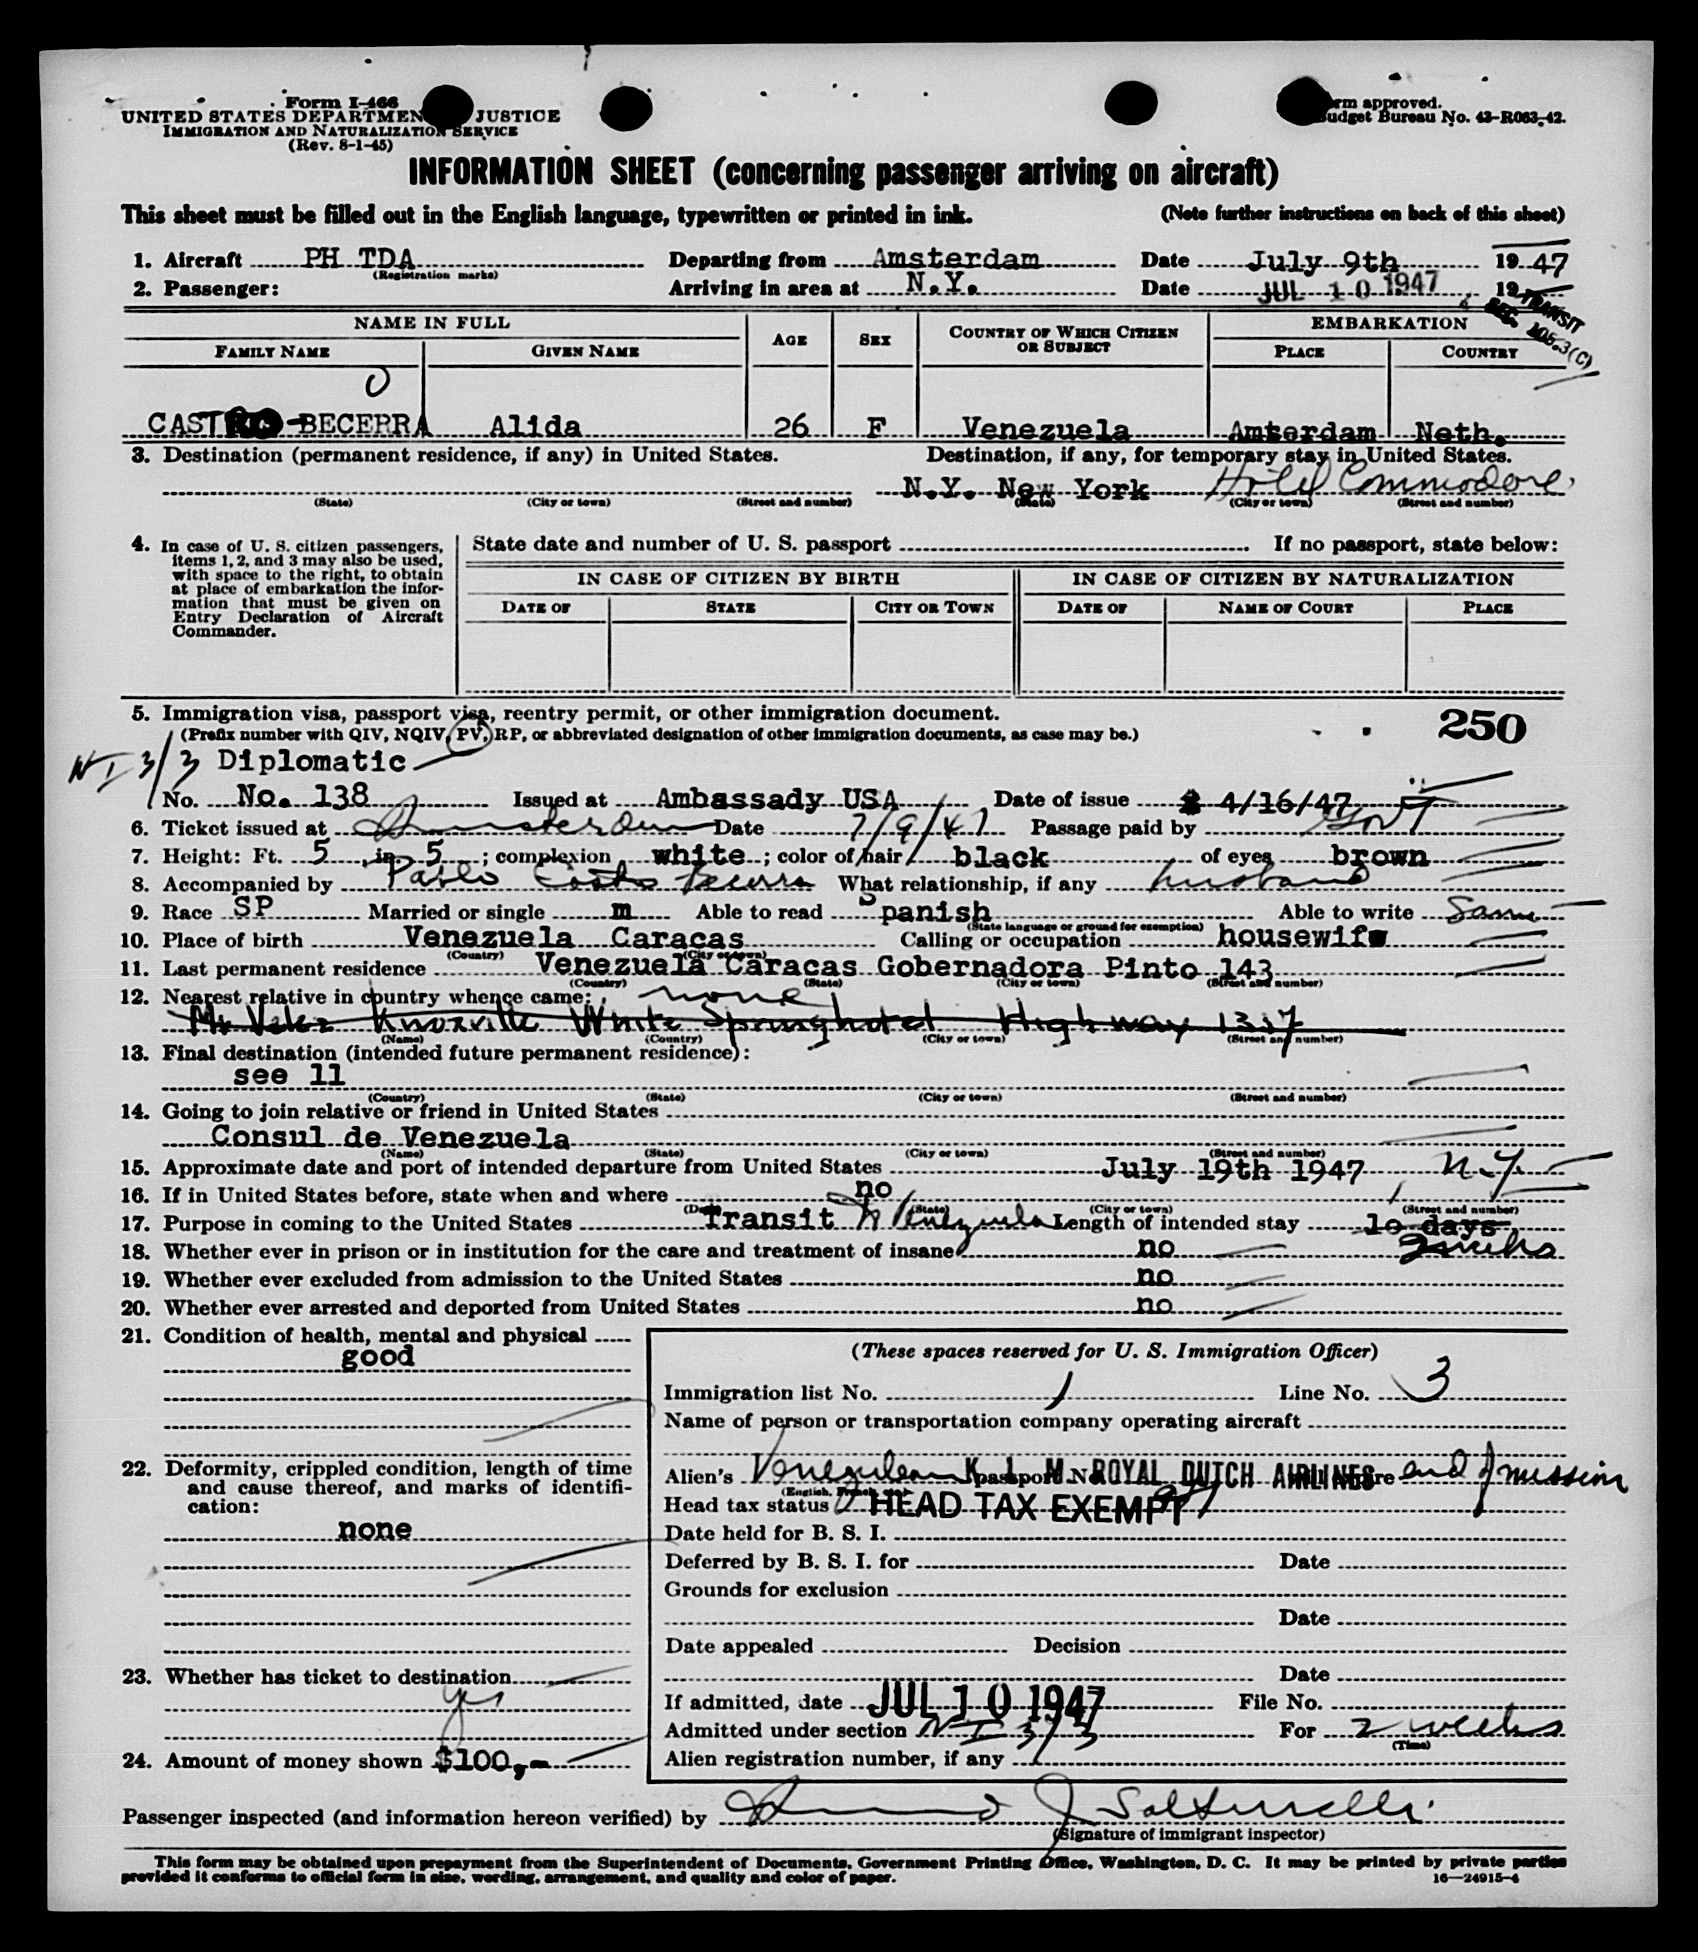 Form I-466
UNITED STATES DEPARTMEN JUSTICE
IMMIGRATION AND NATURALIZATION SERVICE
(Rev. 8-1-45)
rm approved.
udget Bureau No. 43-R063-42.
INFORMATION SHEET (concerning passenger arriving on aircraft)
This sheet must be filled out in the English language, typewritten or printed in ink. (Note further instructions on back of this sheet)
1. Aircraft PH TDA Departing from Amsterdam Date July 9th 1947
(Registration marks)
2. Passenger: Arriving in area at N.Y. Date JUL 10 1947 19
TRANSIT
SEC. 105.3(C)
NAME IN FULL AGE SEX COUNTRY OF WHICH CITIZEN OR SUBJECT EMBARKATION
FAMILY NAME GIVEN NAME PLACE COUNTRY
O
CAST -BECERRA Alida 26 F Venezuela Amterdam Neth.
3. Destination (permanent residence, if any) in United States. Destination, if any, for temporary stay in United States.
N.Y. New York Hotel Commodore
(State) (City or town) (Street and number) (State) (City or town) (Street and number)
4. In case of U. S. citizen passengers, items 1, 2, and 3 may also be used, with space to the right, to obtain at place of embarkation the information that must be given on Entry Declaration of Aircraft Commander.
State date and number of U. S. passport If no passport, state below:
IN CASE OF CITIZEN BY BIRTH IN CASE OF CITIZEN BY NATURALIZATION
DATE OF STATE CITY OR TOWN DATE OF NAME OF COURT PLACE
5. Immigration visa, passport visa, reentry permit, or other immigration document. 250
(Prefix number with QIV, NQIV, PV, RP, or abbreviated designation of other immigration documents, as case may be.)
NI 3/3 Diplomatic
No. No. 138 Issued at Ambassady USA Date of issue 4/16/47
6. Ticket issued at Amsterdam Date 7/9/47 Passage paid by Gov't
7. Height: Ft. 5, in. 5; complexion white; color of hair black of eyes brown
8. Accompanied by Pablo Castro Becerra What relationship, if any husband
9. Race SP Married or single m Able to read Spanish Able to write Same
(State language or ground for exemption)
10. Place of birth Venezuela Caracas Calling or occupation housewife
(Country) (City or town)
11. Last permanent residence Venezuela Caracas Gobernadora Pinto 143
(Country) (State) (City or town) (Street and number)
12. Nearest relative in country whence came: none
Mr Velez Knoxville White Springhotel Highway 1337
(Name) (Country) (City or town) (Street and number)
13. Final destination (intended future permanent residence):
see 11
(Country) (State) (City or town) (Street and number)
14. Going to join relative or friend in United States
Consul de Venezuela
(Name) (State) (City or town) (Street and number)
15. Approximate date and port of intended departure from United States July 19th 1947 N.Y.
16. If in United States before, state when and where no
(Date) (State) (City or town) (Street and number)
17. Purpose in coming to the United States Transit to Venezuela Length of intended stay 10 days
2 weeks
18. Whether ever in prison or in institution for the care and treatment of insane no
19. Whether ever excluded from admission to the United States no
20. Whether ever arrested and deported from United States no
21. Condition of health, mental and physical
good
22. Deformity, crippled condition, length of time and cause thereof, and marks of identification:
none
23. Whether has ticket to destination
yes
24. Amount of money shown $100,-
(These spaces reserved for U. S. Immigration Officer)
Immigration list No. 1 Line No. 3
Name of person or transportation company operating aircraft
K. L. M. ROYAL DUTCH AIRLINES
Alien's Venezuelan passport No. end of mission
(English, French, etc.)
Head tax status HEAD TAX EXEMPT
Date held for B. S. I.
Deferred by B. S. I. for Date
Grounds for exclusion
Date
Date appealed Decision
Date
If admitted, date JUL 10 1947 File No.
Admitted under section NI 3/3 For 2 weeks
(Time)
Alien registration number, if any
Passenger inspected (and information hereon verified) by
(Signature of immigrant inspector)
This form may be obtained upon prepayment from the Superintendent of Documents, Government Printing Office, Washington, D. C. It may be printed by private parties
provided it conforms to official form in size, wording, arrangement, and quality and color of paper. 16—24915-4